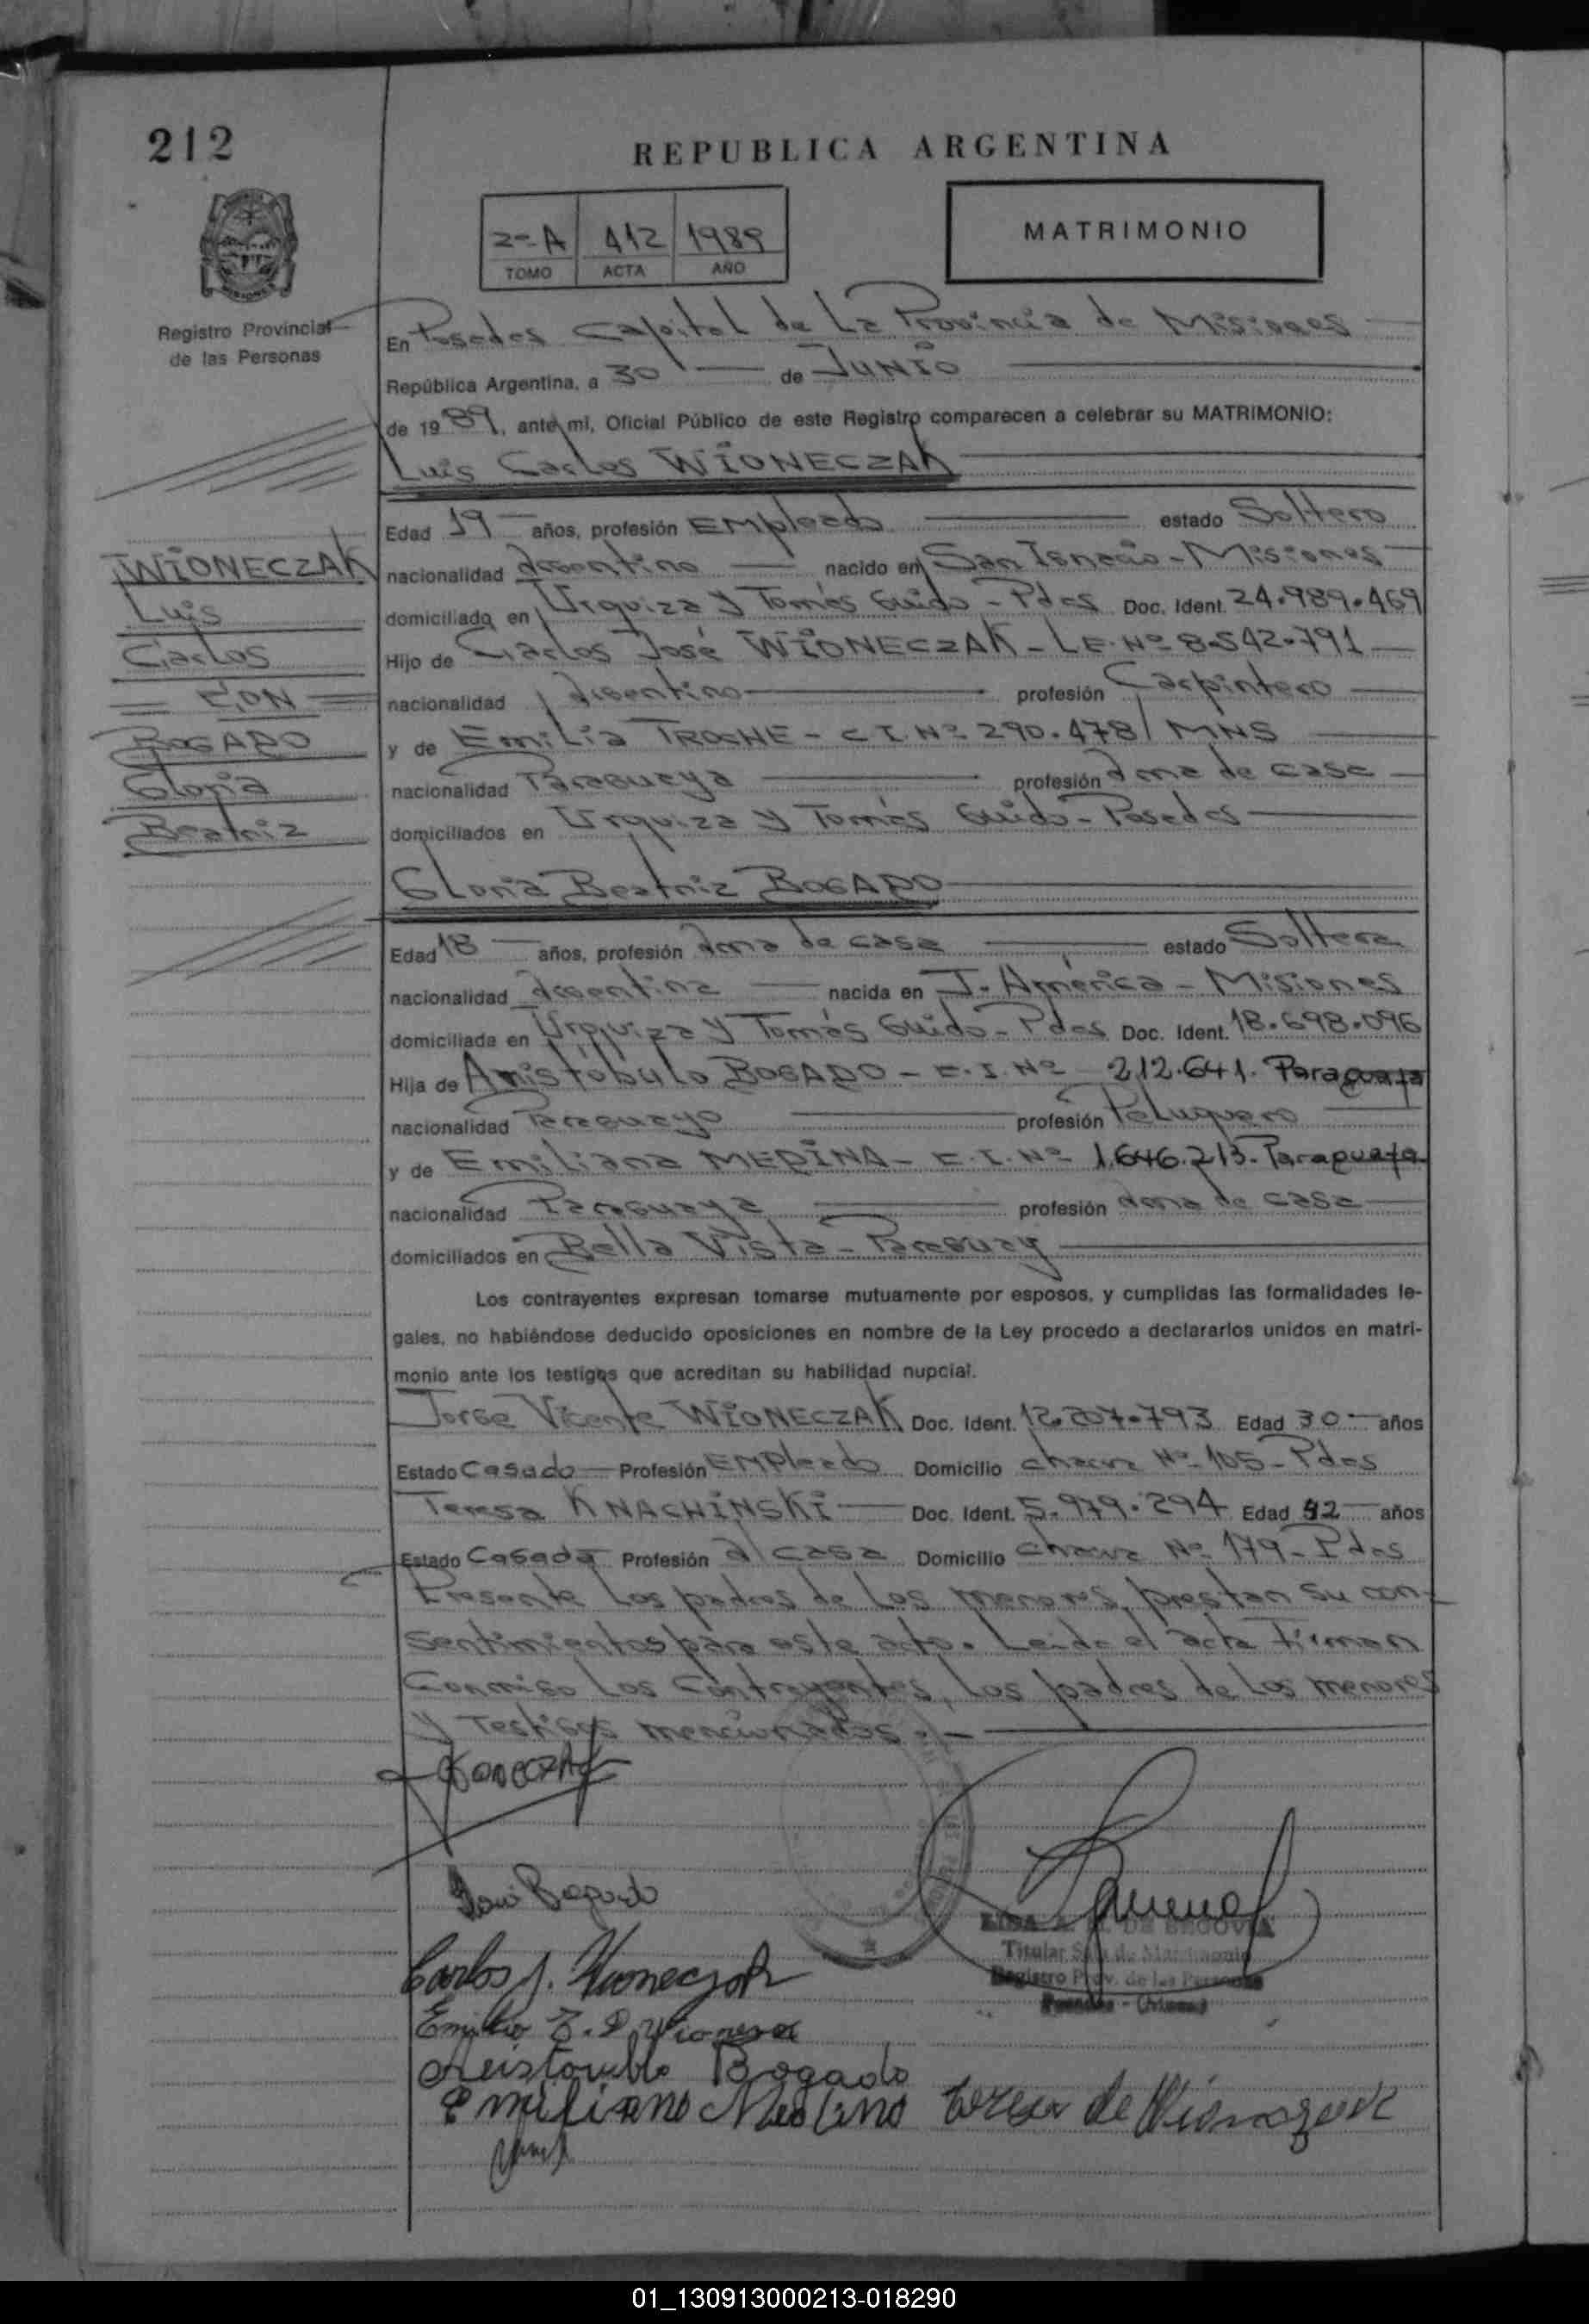 212
REPUBLICA ARGENTINA
2º-A 412 1989
TOMO ACTA AÑO
MATRIMONIO
Registro Provincial
de las Personas
En Posadas Capital de La Provincia de Misiones
República Argentina, a 30 de JUNIO
de 1989, ante mi, Oficial Público de este Registro comparecen a celebrar su MATRIMONIO:
Luis Carlos WIONECZAK
Edad 19 años, profesión EMpleado estado Soltero
WIONECZAK
Luis
Carlos
CON
BOGADO
Gloria
Beatriz
nacionalidad argentino nacido en San Ignacio - Misiones
domiciliado en Urquiza y Tomás Guido - Pdas Doc. Ident. 24.989.469
Hijo de Carlos José WIONECZAK - L.E. Nº 8.542.791
nacionalidad argentino profesión Carpintero
y de Emilia TROCHE - C.I. Nº 290.478/ MNS
nacionalidad Paraguaya profesión ama de casa
domiciliados en Urquiza y Tomás Guido - Posadas
Gloria Beatriz BOGADO
Edad 18 años, profesión ama de casa estado Soltera
nacionalidad argentina nacida en J. América - Misiones
domiciliada en Urquiza y Tomás Guido - Pdas Doc. Ident. 18.698.096
Hija de Aristóbulo BOGADO - C.I. Nº 212.641. Paraguaya
nacionalidad Paraguayo profesión Peluquero
y de Emiliana MEDINA - C.I. Nº 1.646.213. Paraguaya
nacionalidad Paraguaya profesión ama de casa
domiciliados en Bella Vista - Paraguay
Los contrayentes expresan tomarse mutuamente por esposos, y cumplidas las formalidades le-
gales, no habiéndose deducido oposiciones en nombre de la Ley procedo a declararlos unidos en matri-
monio ante los testigos que acreditan su habilidad nupcial.
Jorge Vicente WIONECZAK Doc. Ident. 12.207.793 Edad 30 años
Estado Casado Profesión EMPleado Domicilio chacra Nº 105 - Pdas
Teresa KNACHINSKI Doc. Ident. 5.979.294 Edad 42 años
Estado Casada Profesión a/ casa Domicilio chacra Nº 179 - Pdas
Presente los padres de los menores, prestan su con-
sentimientos para este acto. Leida el acta Firman
Conmigo los Contrayentes, los padres de los menores
y Testigos mencionados.-
Carlos J. Wioneczak
DE SEGOVIA
Titular Sala de Matrimonio
Registro Prov. de las Personas
Posadas - (Mnes)
Aristobulo Bogado
Emiliana Medina Teresa de Wioneczak
01_130913000213-018290